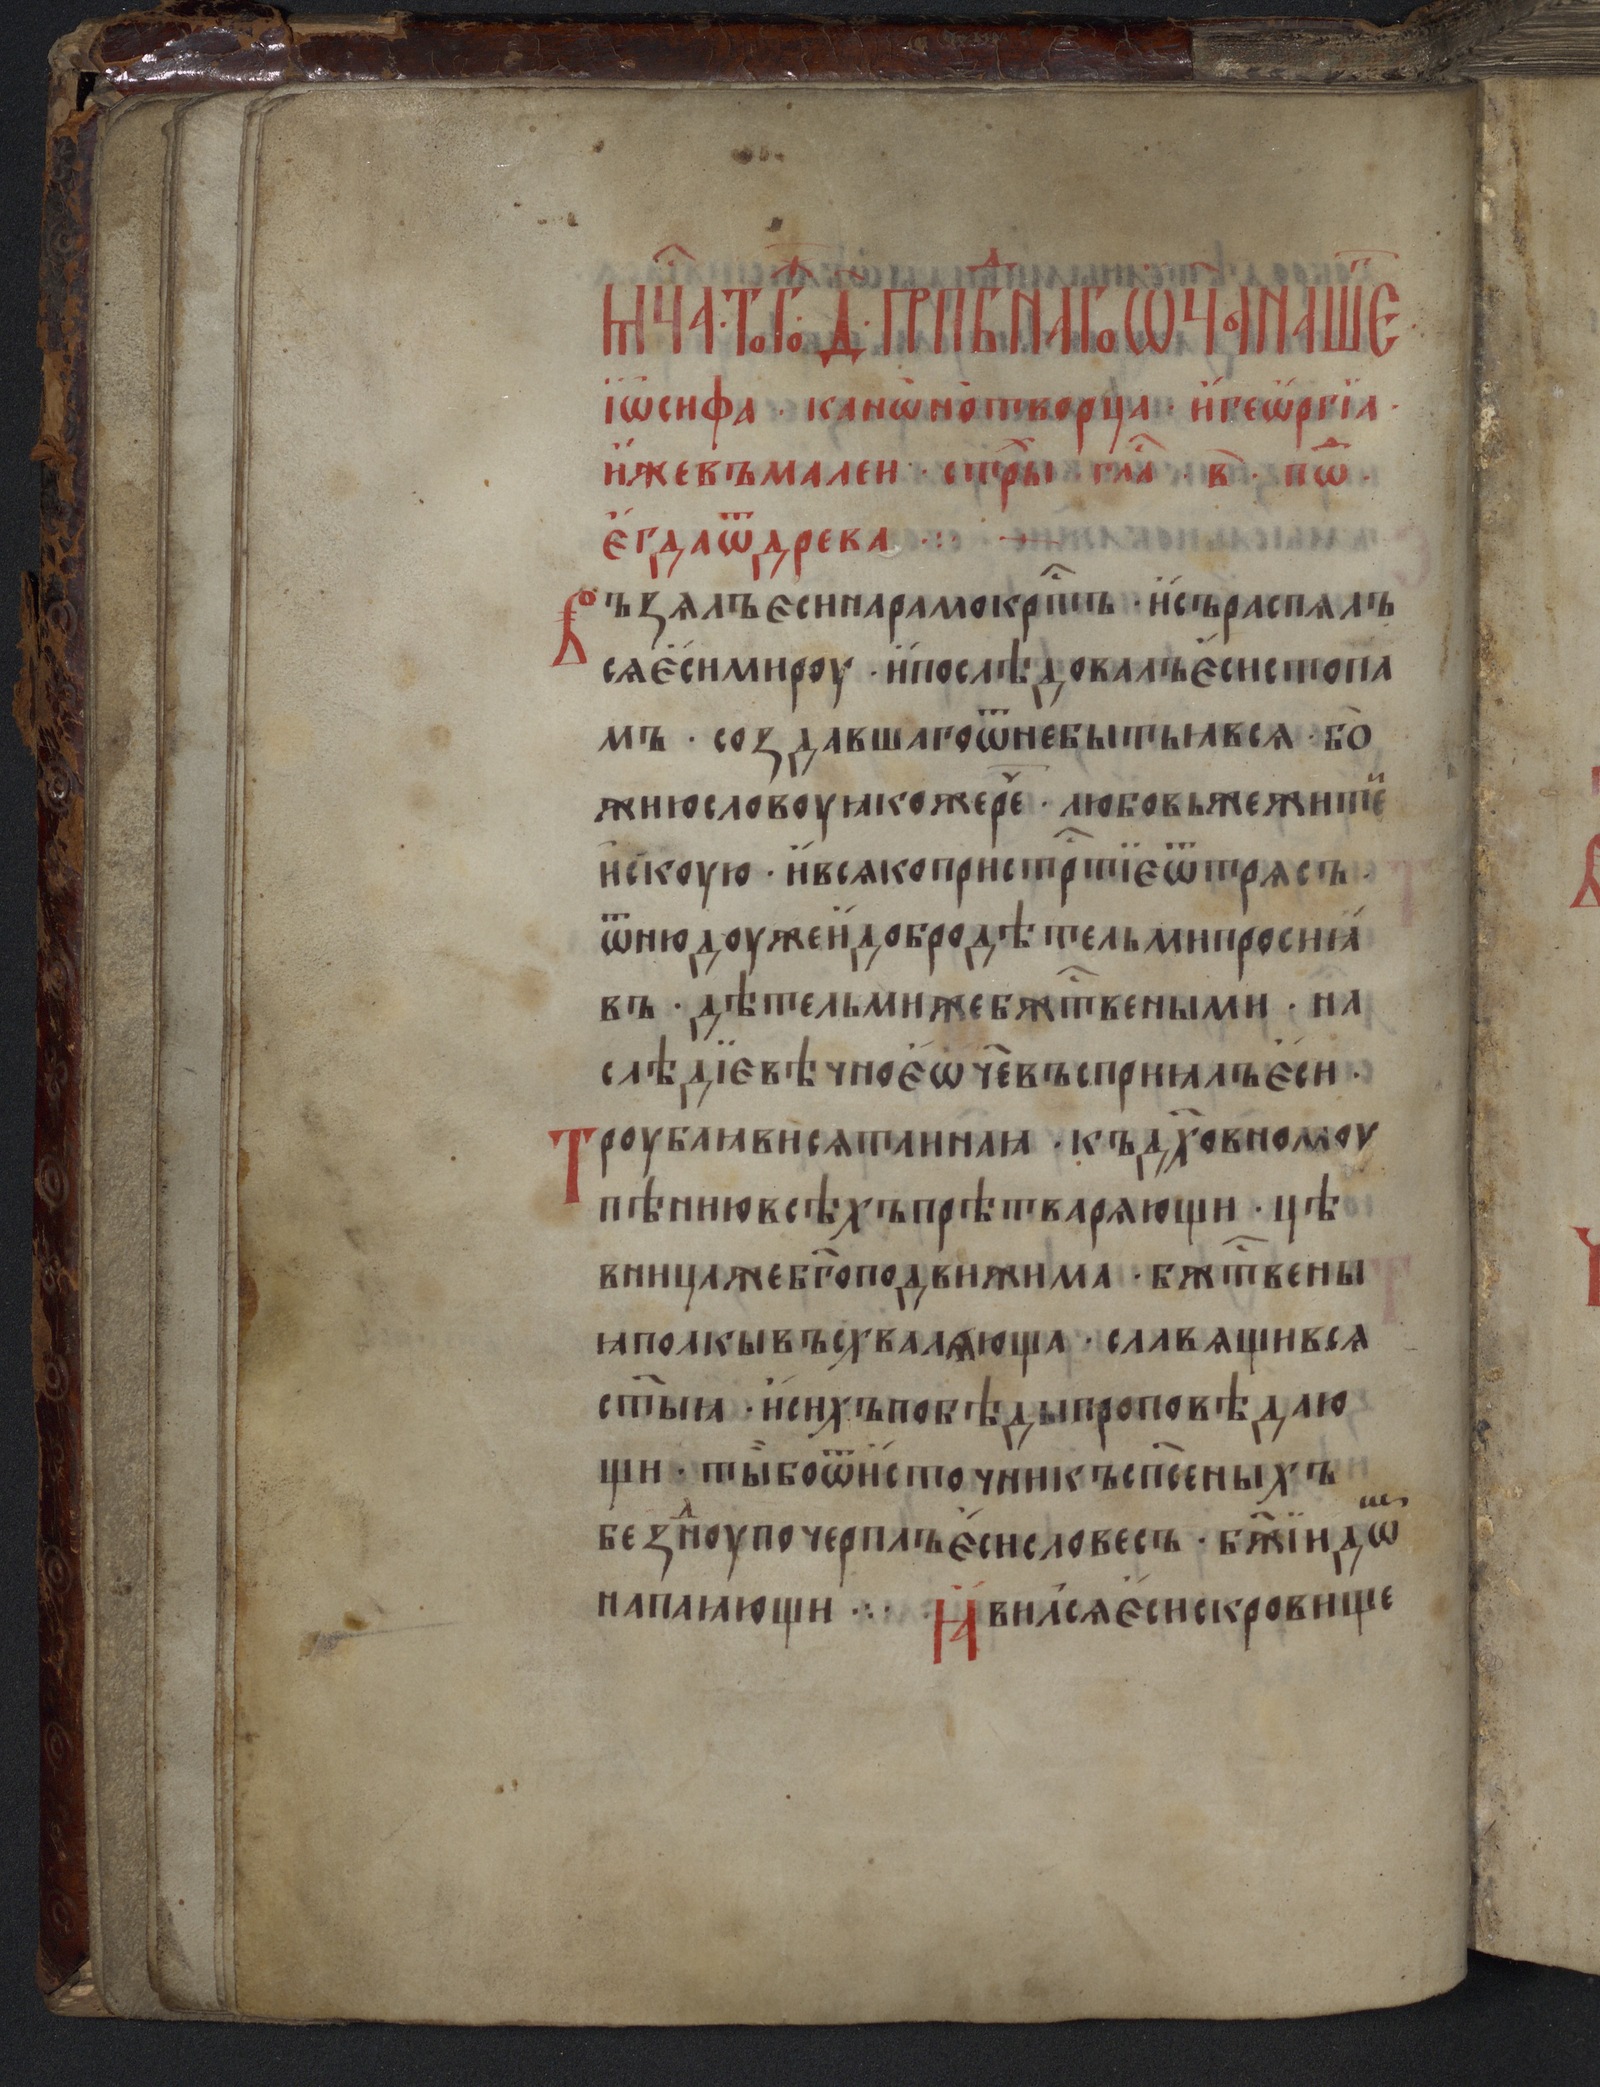 Мⷭ҇ЦА · ТОГО · Д҃ · ПРПⷣБНАГО ѾЦА НАШЕⷢ҇
іѡсифа · канѡнотворца · и геѡргїа ·
иже въ мален · стⷯры · глаⷭ · в҃ · поⷣ ·
егда ѿ древа ·:· —
Въꙁѧлъ еси на рамо крⷭ҇тъ · и съраспѧлъ
сѧ еси мироу · и послѣдовалъ еси стопа
мъ · соꙁдавшаго ѿ небытьꙗ всѧ · бо
жию словоу ꙗкоже реⷱ҇ · любовь же житїе
искоую · и всѧко пристрⷭ҇тїе ѿтрѧсъ ·
ѿнюдоуже и добродѣтельми просиꙗ
въ · дѣтельми же бжⷭ҇твеными · на
слѣдїе вѣчное ѡч҃е въсприꙗлъ еси ·
Троуба ꙗви сѧ таинаꙗ · къ дх҃овномоу
пѣнию всѣхъ прѣтварѧющи · цѣ
вница же бг҃оподвижима · бжⷭ҇твены
ꙗ полкы въсхвалѧюща · славѧщи всѧ
ст҃ыꙗ · и сихъ побѣды проповѣдаю
щи · ты бо ѿ источникъ сп҃сеныхъ
беꙁⷣноу почерплъ еси словесъ · бж҃їи дш҃
напаꙗющи ·:· Ꙗвилсѧ еси скровище